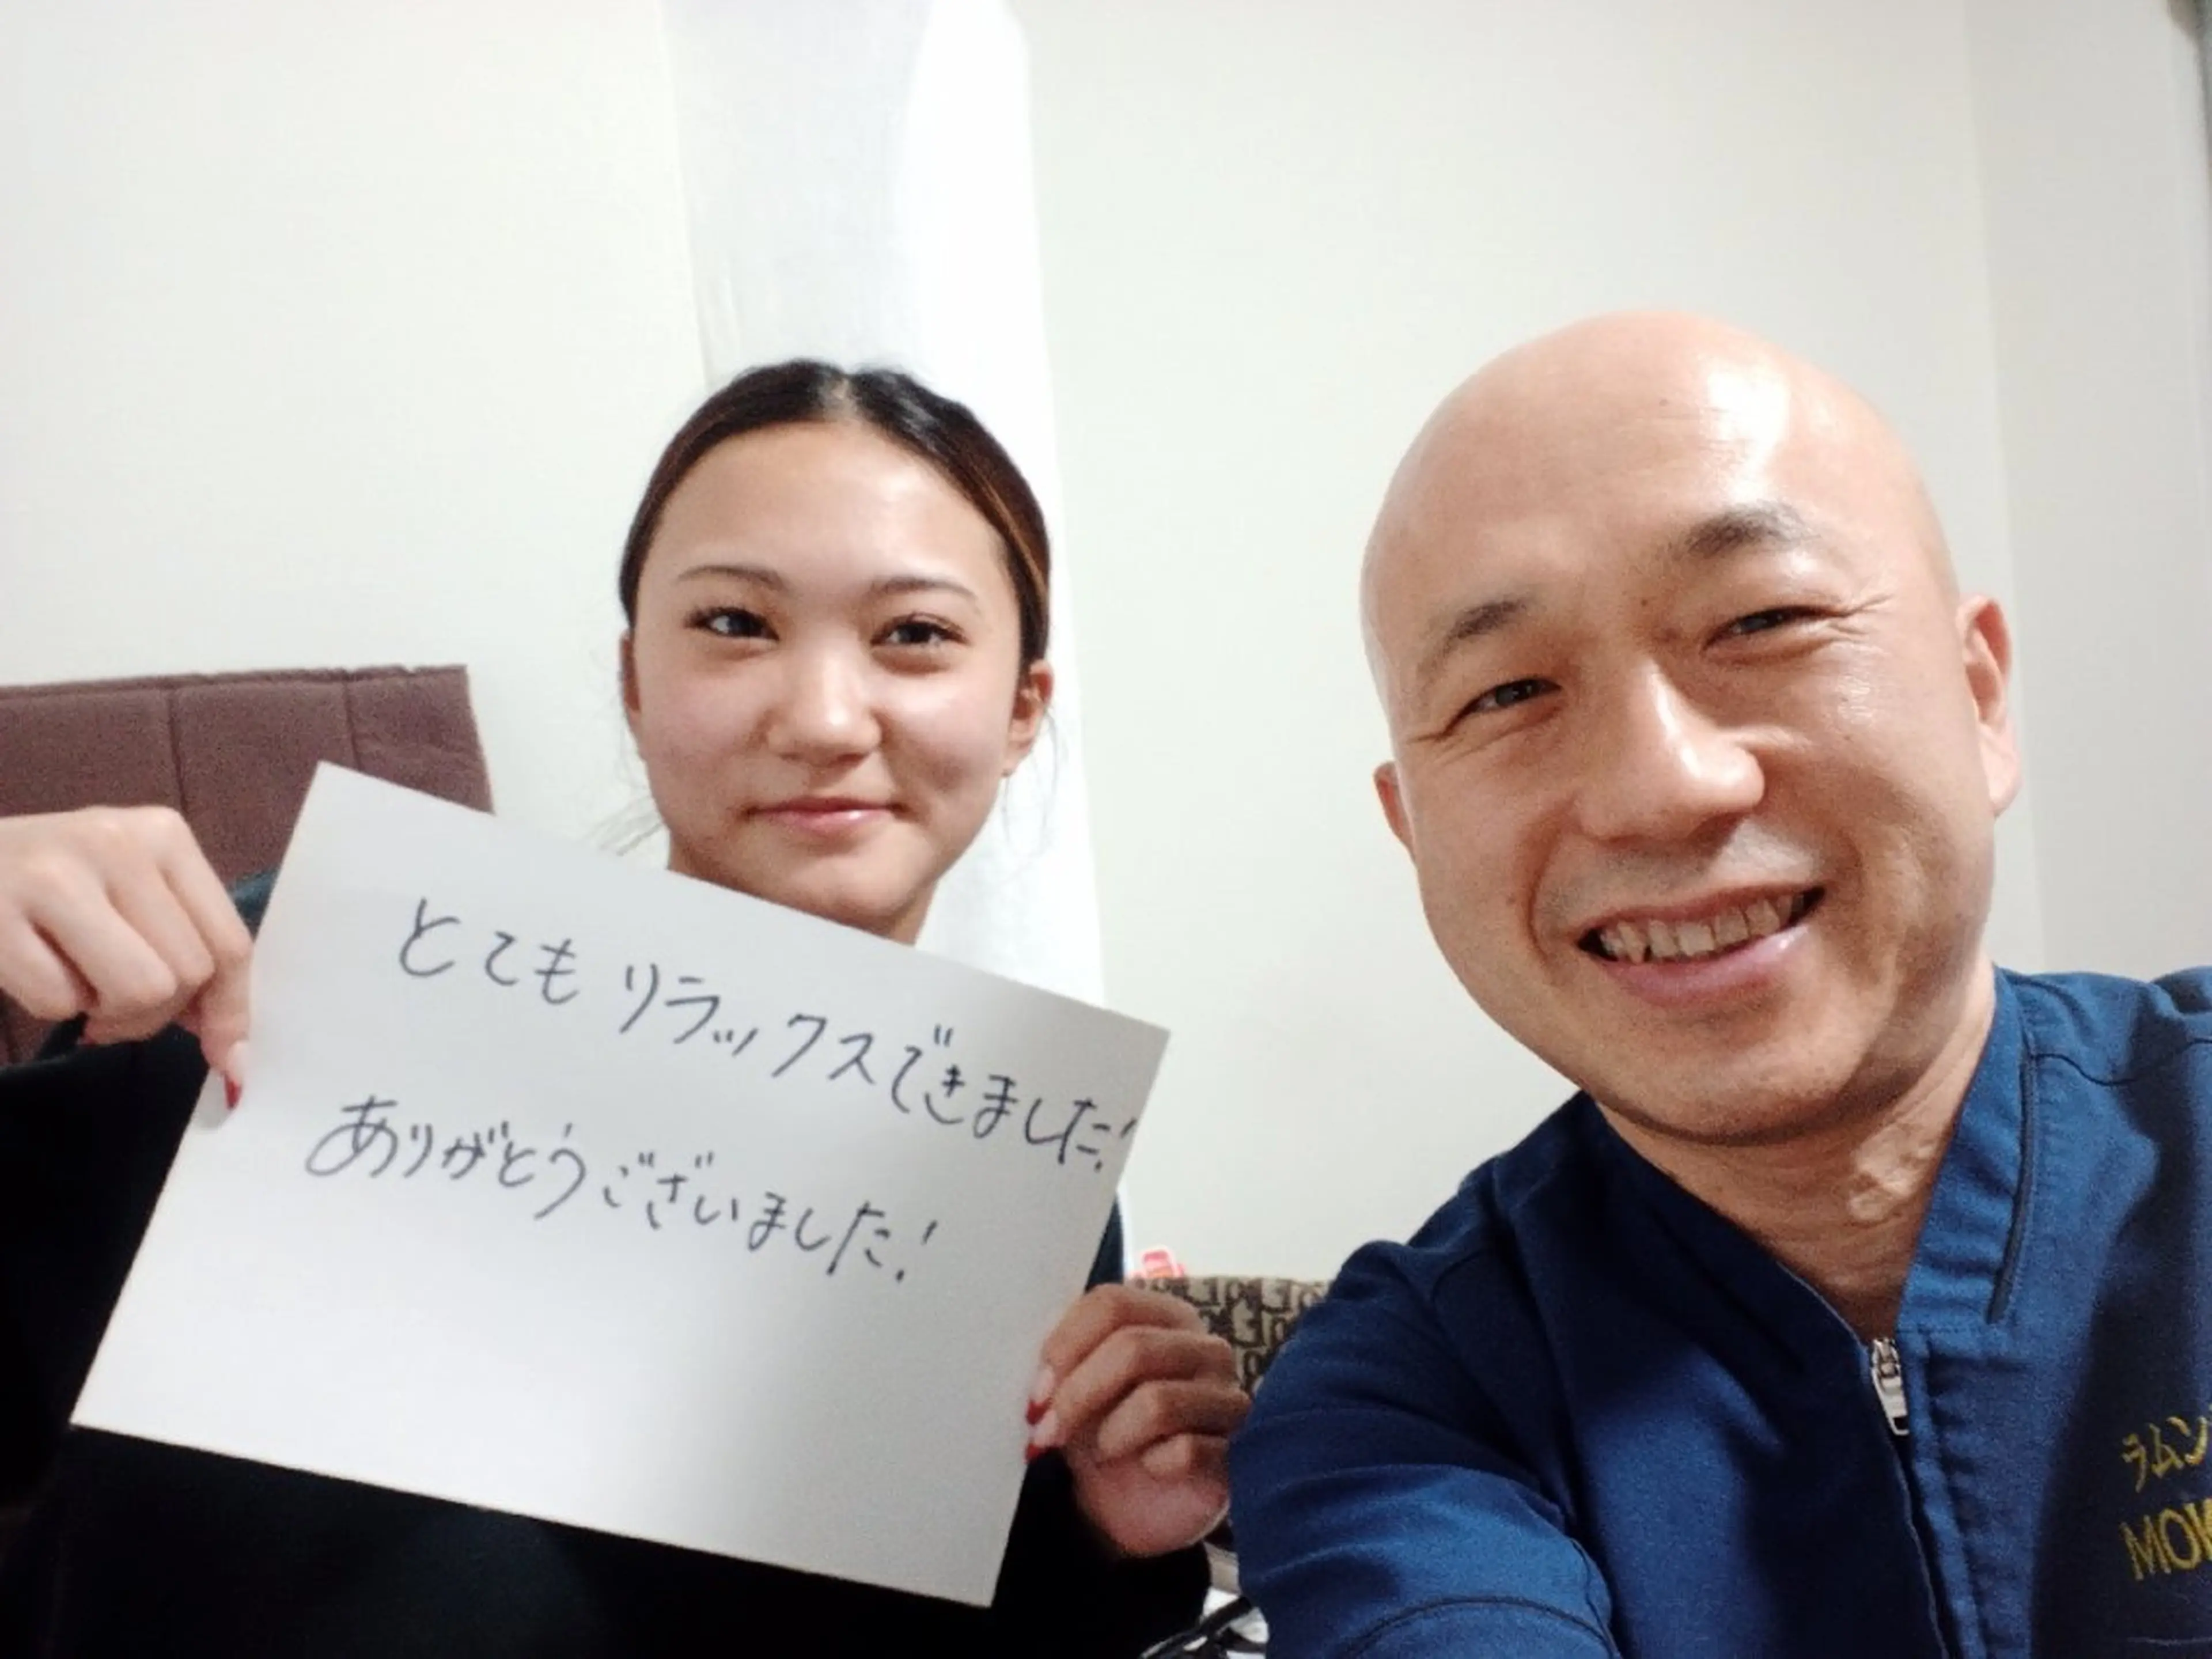 とてもリラックスできました!
ありがとうございました!
ラムン